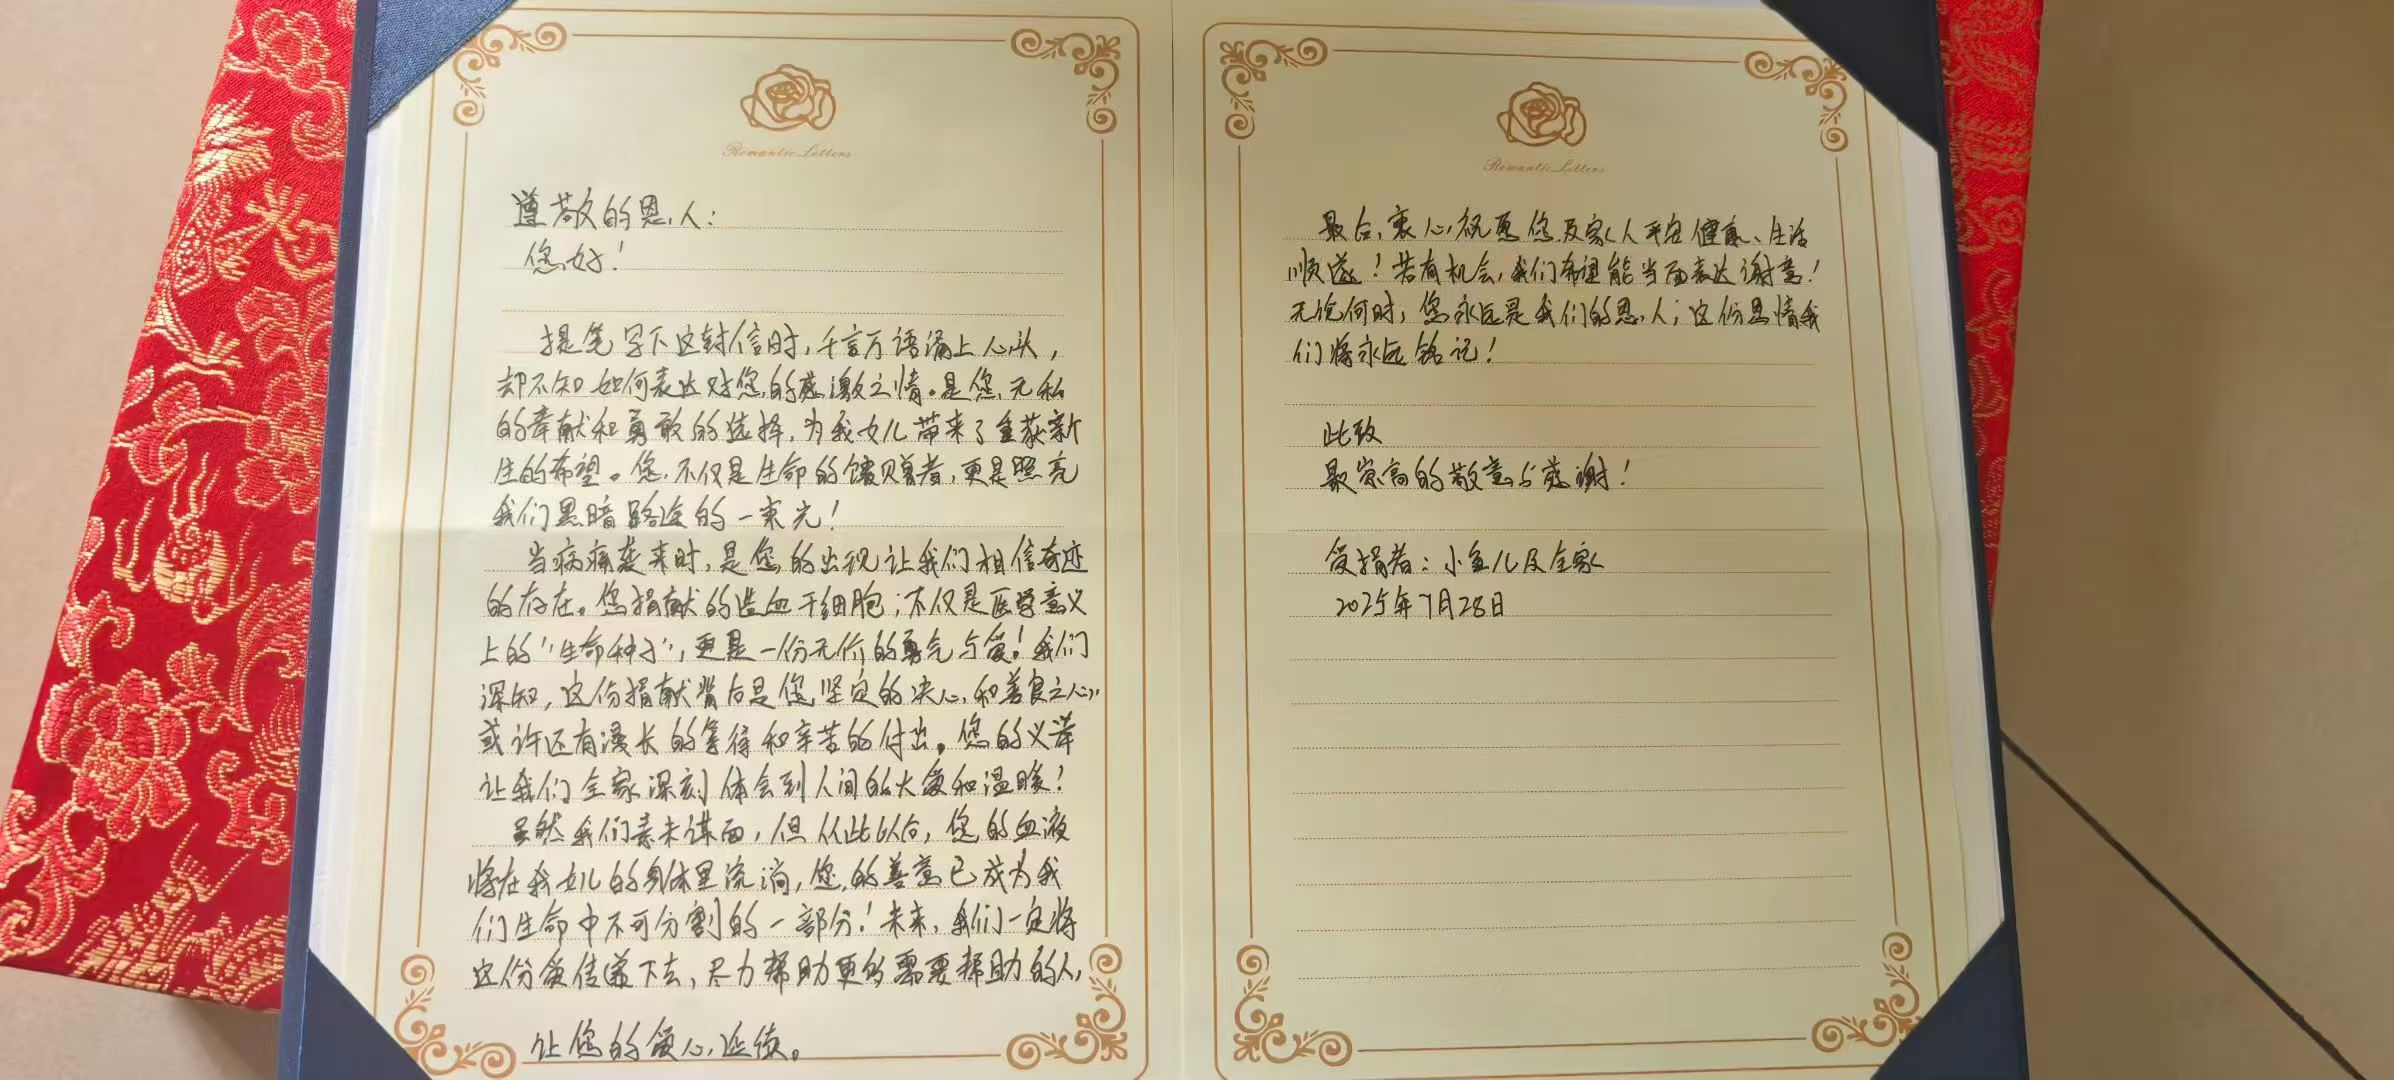 Romantic Letters
遵敬的恩人：
您好！
提笔写下这封信时，千言万语涌上心头，
却不知如何表达对您的感激之情。是您，无私
的奉献和勇敢的选择，为我女儿带来了重获新
生的希望。您，不仅是生命的馈赠者，更是照亮
我们黑暗路途的一束光！
当病痛袭来时，是您的出现让我们相信奇迹
的存在。您捐献的造血干细胞；不仅是医学意义
上的“生命种子”，更是一份无价的勇气与爱！我们
深知，这份捐献背后是您坚定的决心，和善良之心，
或许还有漫长的等待和辛苦的付出。您的义举
让我们全家深刻体会到人间的大爱和温暖！
虽然我们素未谋面，但从此以后，您的血液
将在我女儿的身体里流淌，您的善意已成为我
们生命中不可分割的一部分！未来，我们一定将
这份爱传递下去，尽力帮助更多需要帮助的人，
让您的爱心延续。
Romantic Letters
最后，衷心祝愿您及家人平安健康、生活
顺遂！若有机会，我们希望能当面表达谢意！
无论何时，您永远是我们的恩人；这份恩情我
们将永远铭记！
此致
最崇高的敬意与感谢！
受捐者：小鱼儿及全家
2025年7月28日